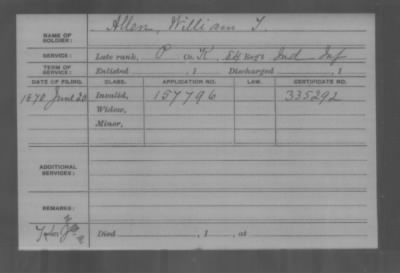 NAME OF SOLDIER: Allen, William T.
SERVICE: Late rank, P Co. K, 54 Reg't Ind Inf
TERM OF SERVICE: Enlisted , 1 Discharged , 1
DATE OF FILING. CLASS. APPLICATION NO. LAW. CERTIFICATE NO.
1878 June 20 Invalid, 157796 335292
Widow,
Minor,
ADDITIONAL SERVICES:
REMARKS:
Died , 1 , at